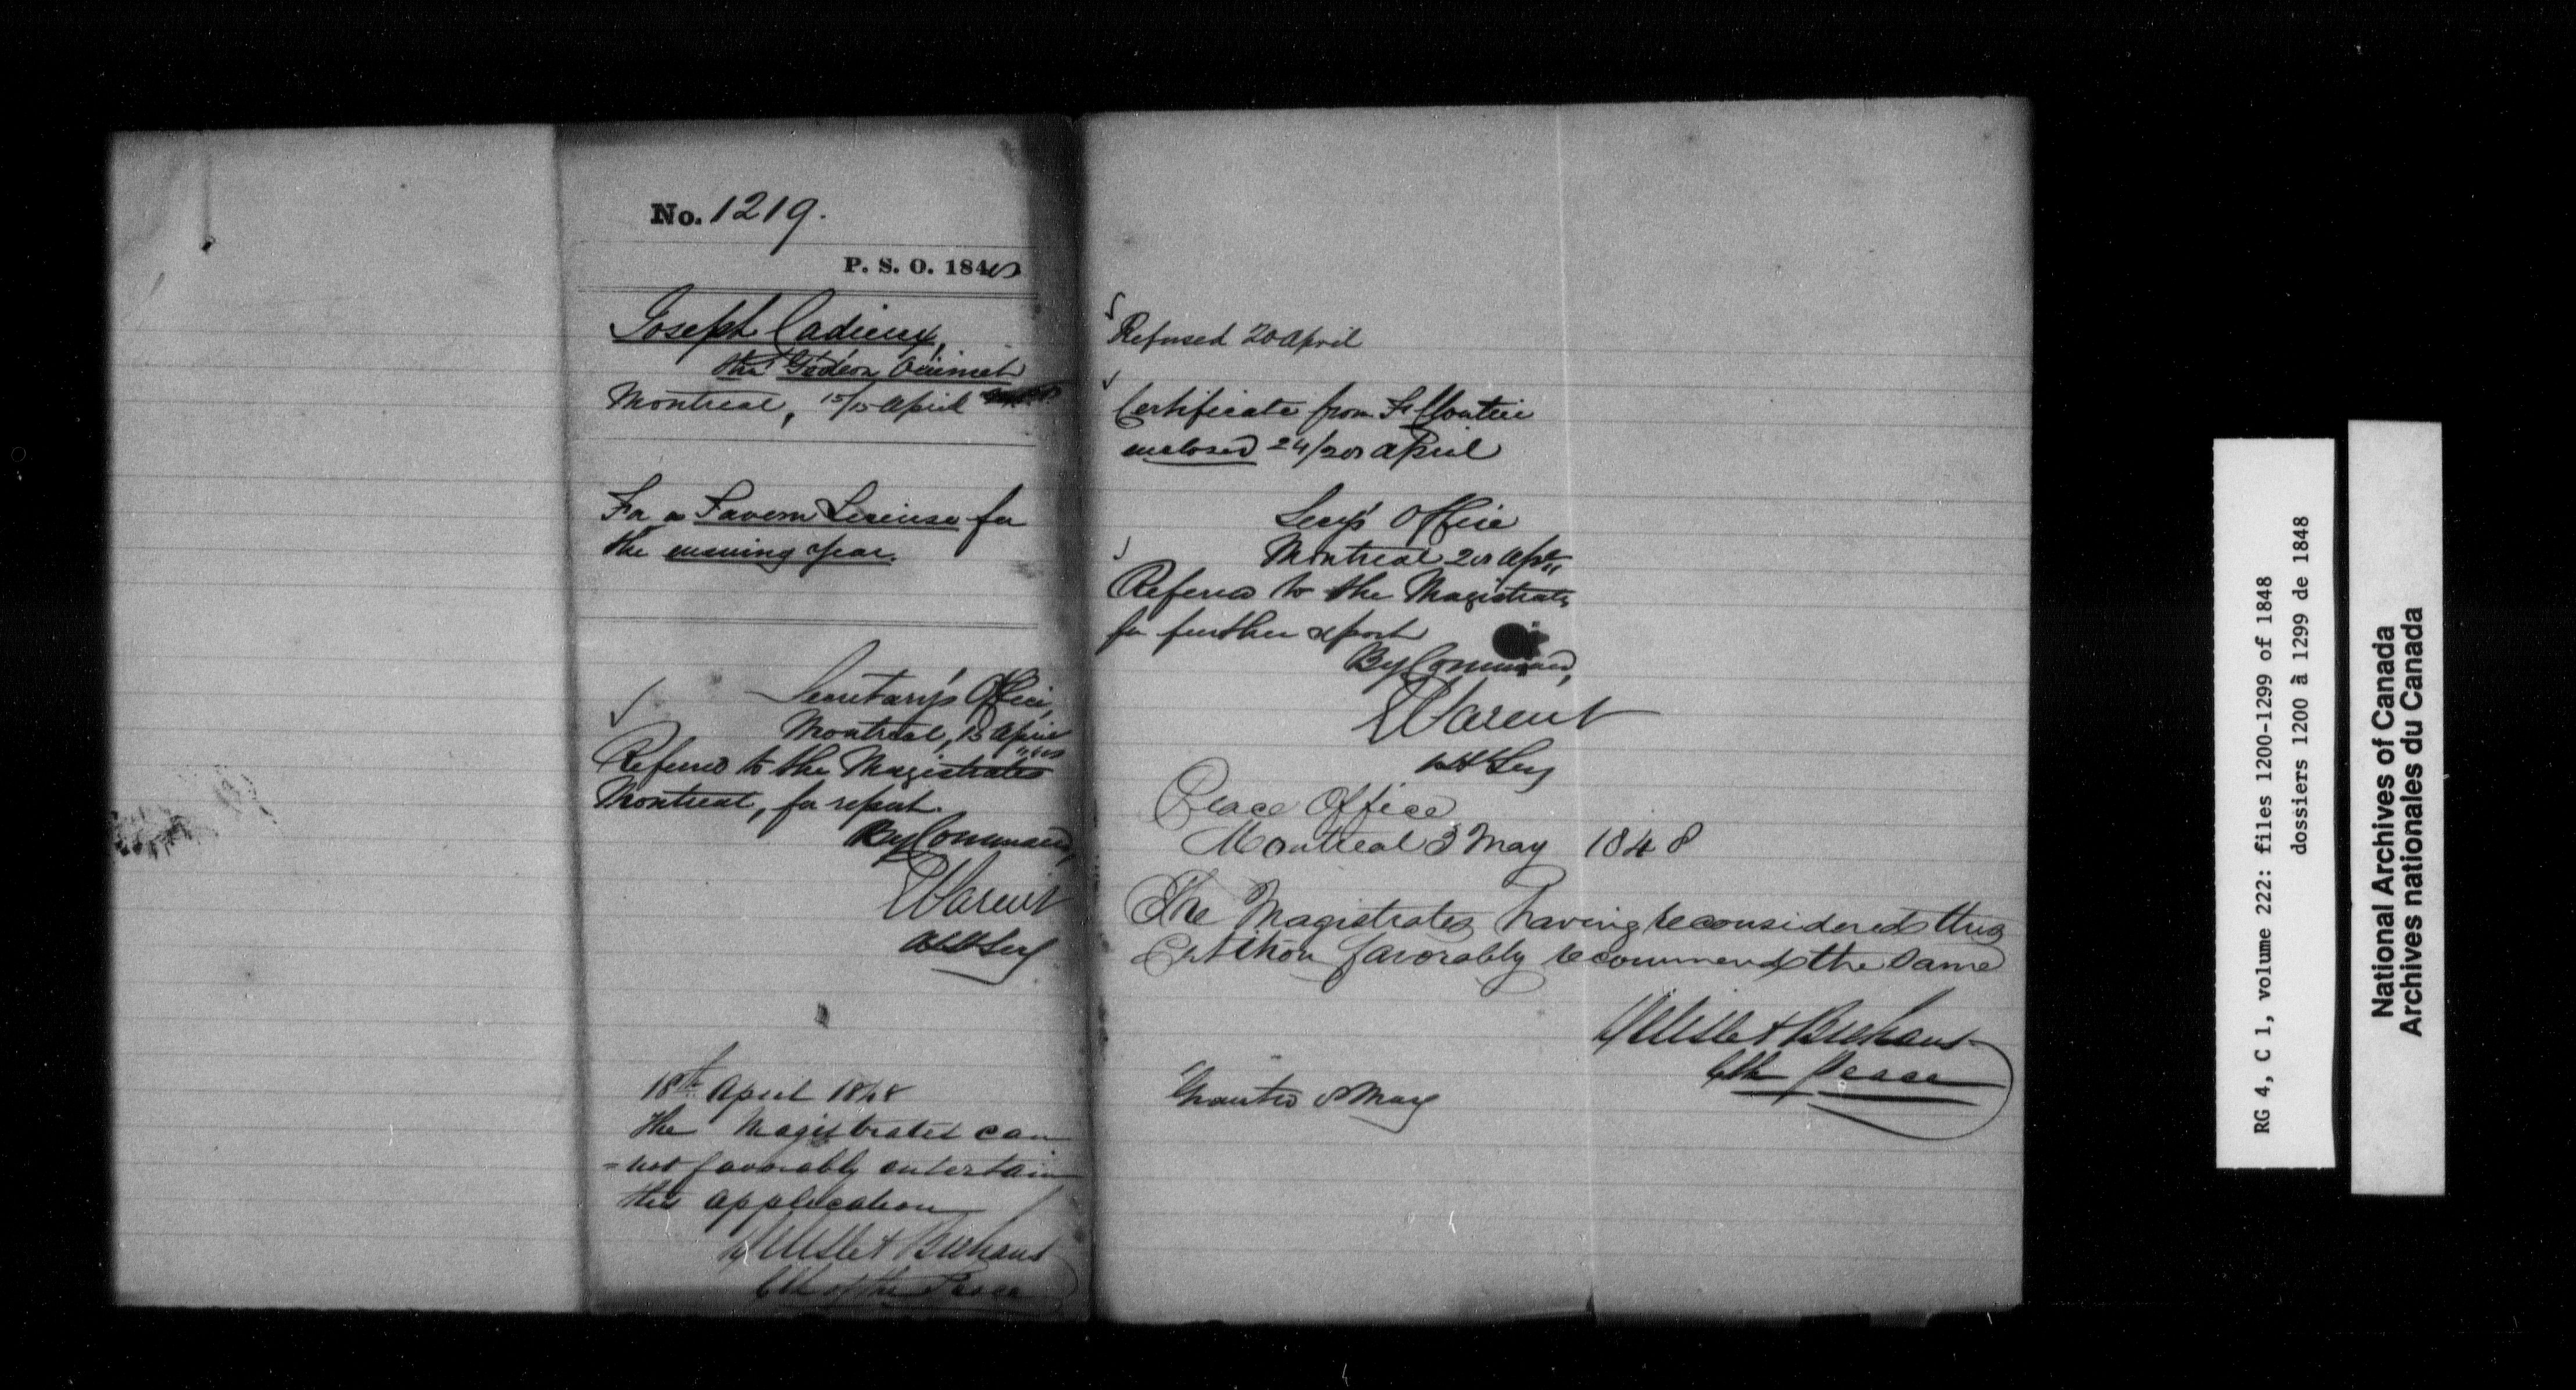 No. 1219.
P. S. O. 1848
Joseph Cadieux,
thro' Gédéon Ouimet
Montreal, 15/15 April
For a Tavern License for
the ensuing year.
Secretary's Office,
Montreal, 15 April
Referred to the Magistrates
Montreal, for report.
By Command,
E Parent
Asst Secy
18th April 1848
The Magistrates can
=not favorably entertain
this application
Delisle & Brehaut
Clk of the Peace
Refused 20 April
Certificate from
enclosed 24/28 April
Secy's Office
Montreal 28 Apr
Referred to the Magistrates
for further report
By Command,
E Parent
Asst Secy
Peace Office
Montreal 3 May 1848
The Magistrates having reconsidered this
Petition favorably recommend the same
Delisle & Brehaut
Clk Peace
Granted 8 May
RG 4, C 1, volume 222: files 1200-1299 of 1848
dossiers 1200 à 1299 de 1848
National Archives of Canada
Archives nationales du Canada